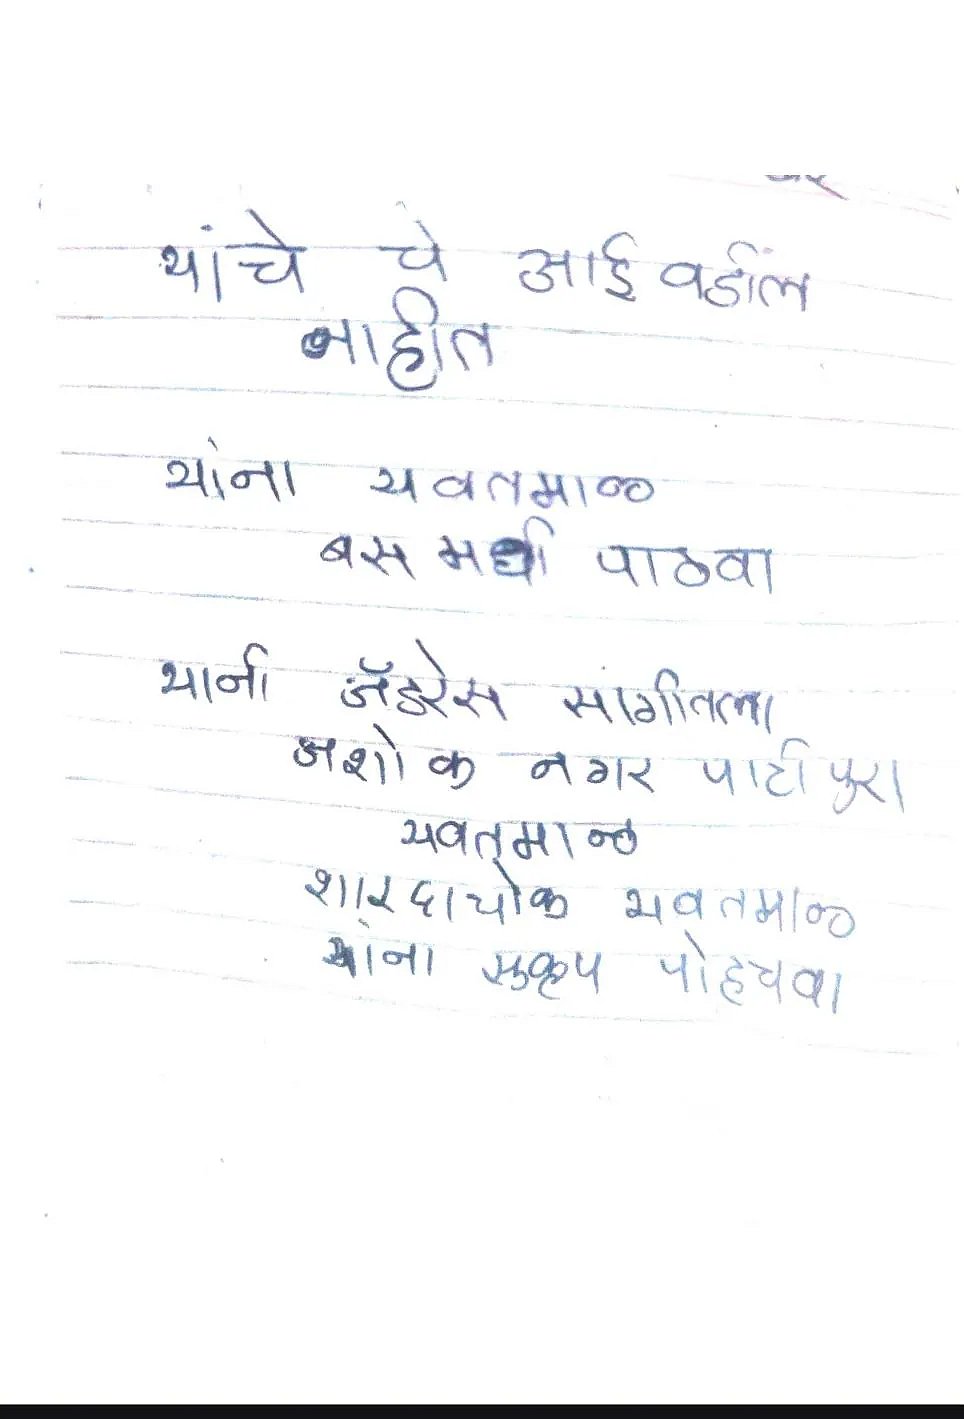 यांचे चे आई वडील
नाहीत
यांना यवतमाळ
बस मधी पाठवा
यानी अॅडरेस सांगीतला
अशोक नगर पाटीपुरा
यवतमाळ
शारदाचोक यवतमाळ
यांना सुकृप पोहचवा